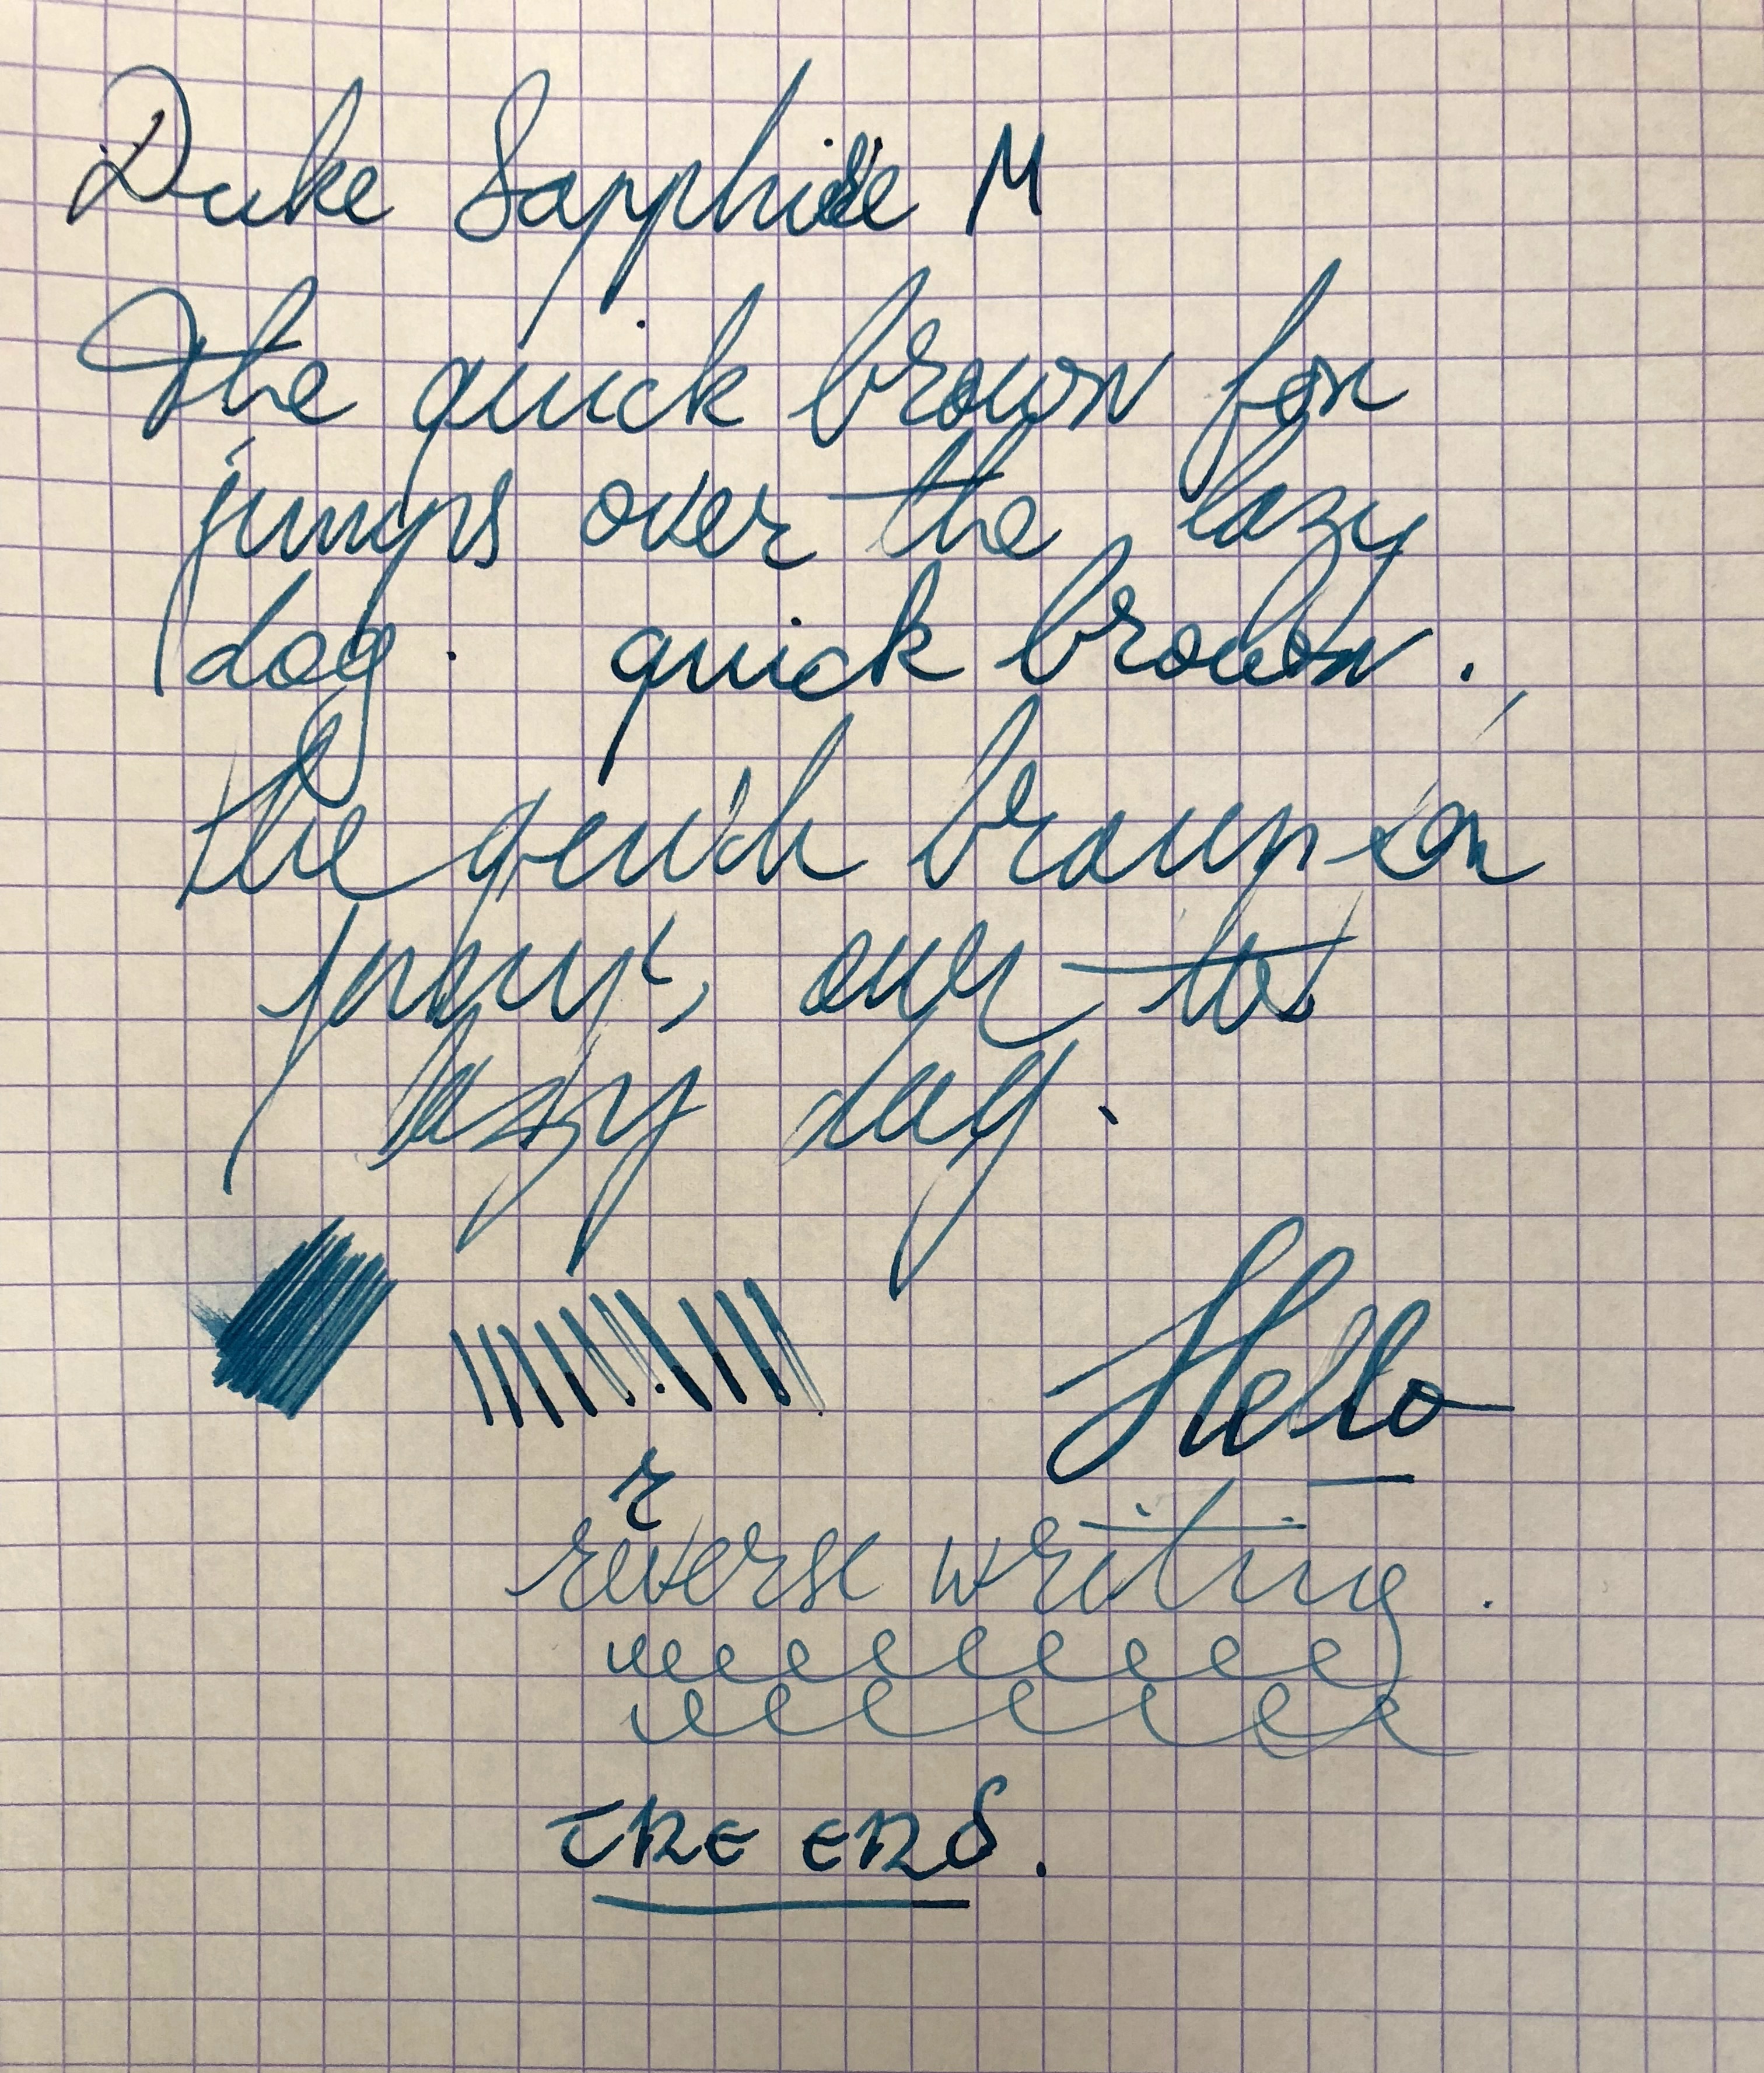 Duke Sapphire M
The quick brown fox
jumps over the lazy
dog. quick brown.
the quick brown fox
jumps over the
lazy dog.
Hello
r
reverse writing.
eeeeeeeee
eeeeeee
The end.